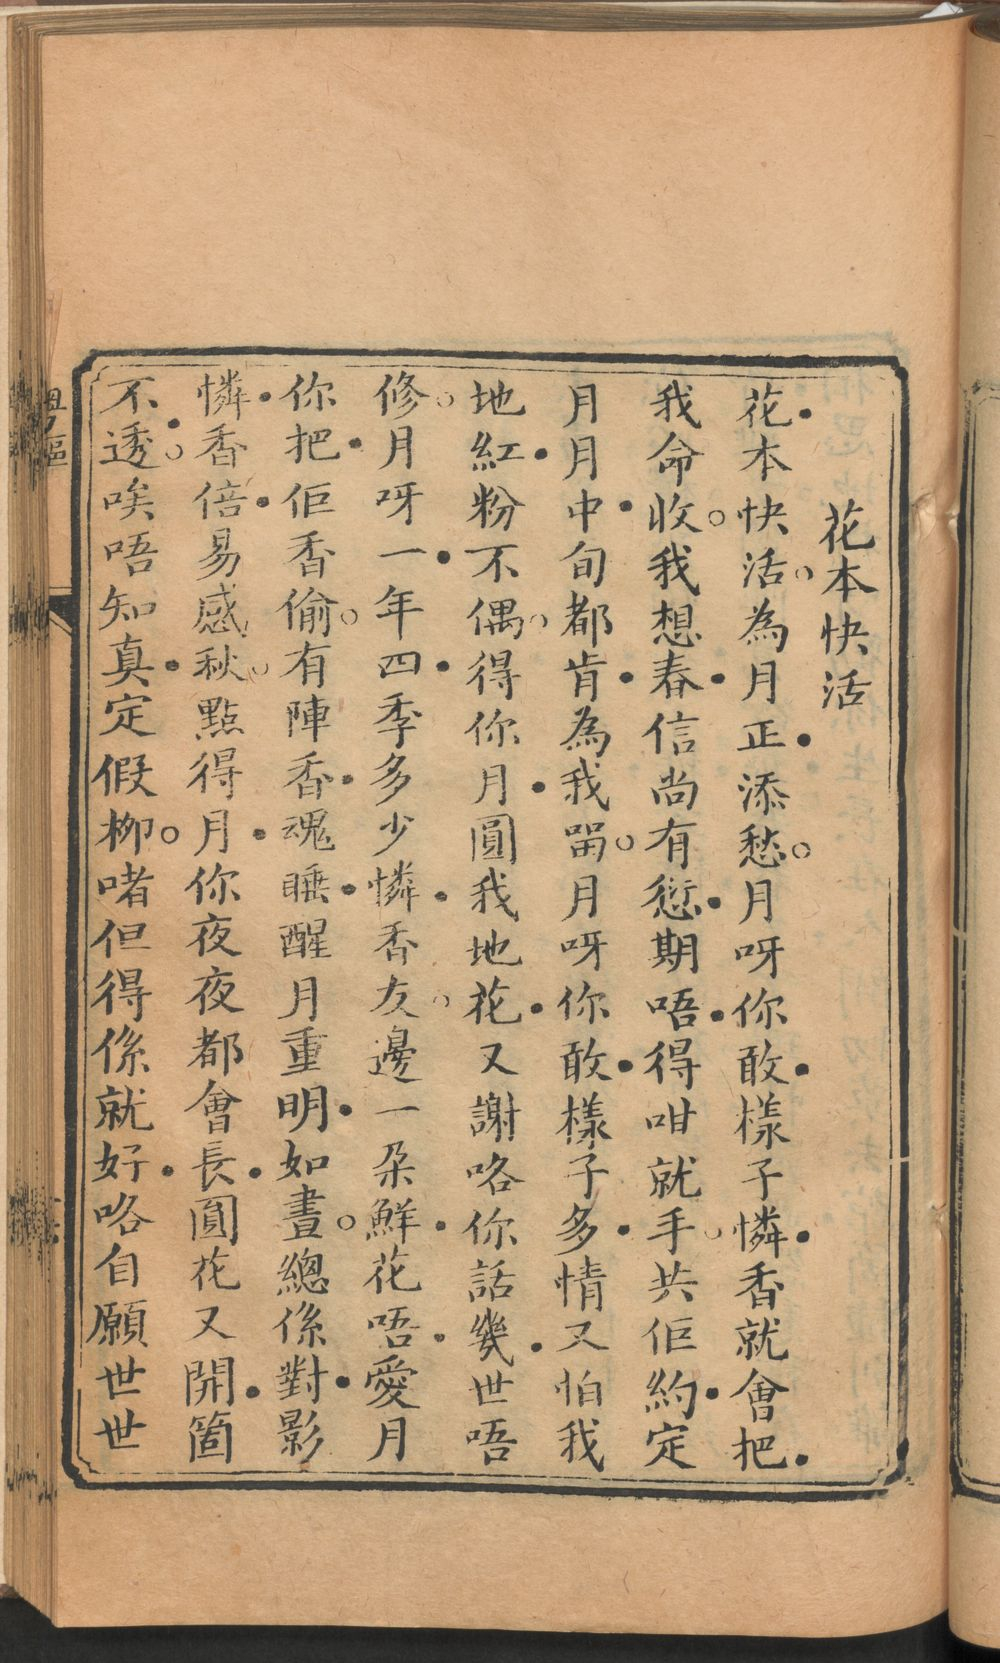 花本快活
花本快活。為月正添愁。月呀你敢樣子憐香就會把
我命收。我想春信尚有愆期唔得咁就手。共佢約定
月月中旬都肯為我留。月呀你敢樣子多情又怕我
地紅粉不偶。得你月圓我地花又謝咯你話幾世唔
修。月呀一年四季多少憐香友。邊一朶鮮花唔愛月
你把佢香偷。有陣香魂睡醒月重明如晝。總係對影
憐香倍易感秋。點得月你夜夜都會長圓花又開箇
不透。唉唔知真定假柳。啫但得係就好咯自願世世
粵謳